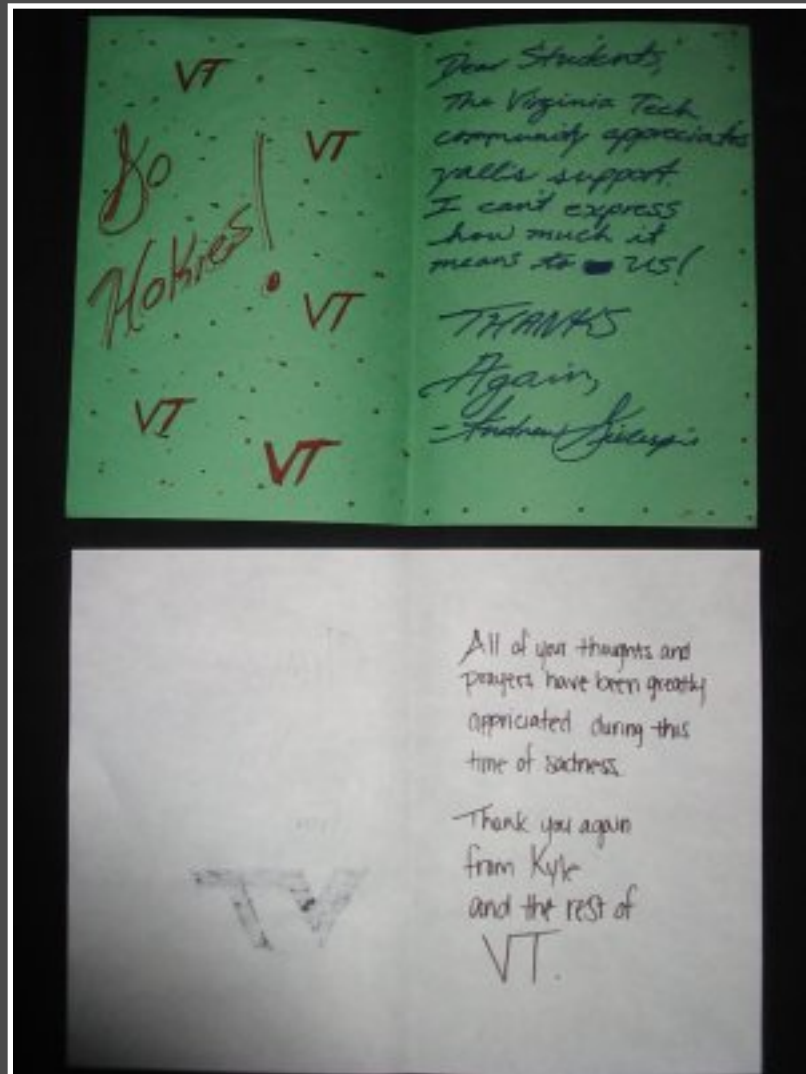 VT
Go
Hokies!
VT
VT
VT
VT
Dear Students,
The Virginia Tech
community appreciates
yall's support.
I can't express
how much it
means to US!
THANKS
Again,
-Andrew Gillespie
All of your thoughts and
prayers have been greatly
appriciated during this
time of sadness.
Thank you again
from Kyle
and the rest of
VT.